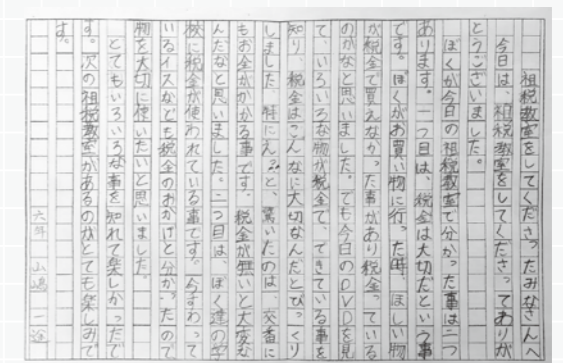 租税教室をしてくださったみなさんへ
今日は、租税教室をしてくださってありが
とうございました。
ぼくが今日の租税教室で分かった事は二つ
あります。一つ目は、税金は大切だという事
です。ぼくがお買い物に行った時、ほしい物
が税金で買えなかった事があり税金っている
のかなと思いました。でも今日のDVDを見
て、いろいろな物が税金で、できている事を
知り、税金はこんなに大切なんだとびっくり
しました。特にえ?と、驚いたのは、交番に
もお金がかかる事です。税金が無いと大変な
んだなと思いました。二つ目は、ぼく達の学
校に税金が使われている事です。今すわって
いるイスなども税金のおかげと分かったので
物を大切に使いたいと思いました。
とてもいろいろな事を知れて楽しかったで
す。次の租税教室があるのがとても楽しみで
す。
六年 山嶋 一